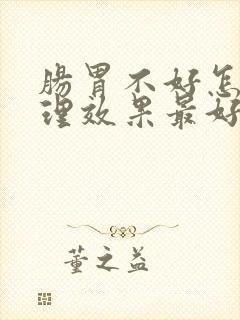 肠胃不好怎
理效果最好
董之益